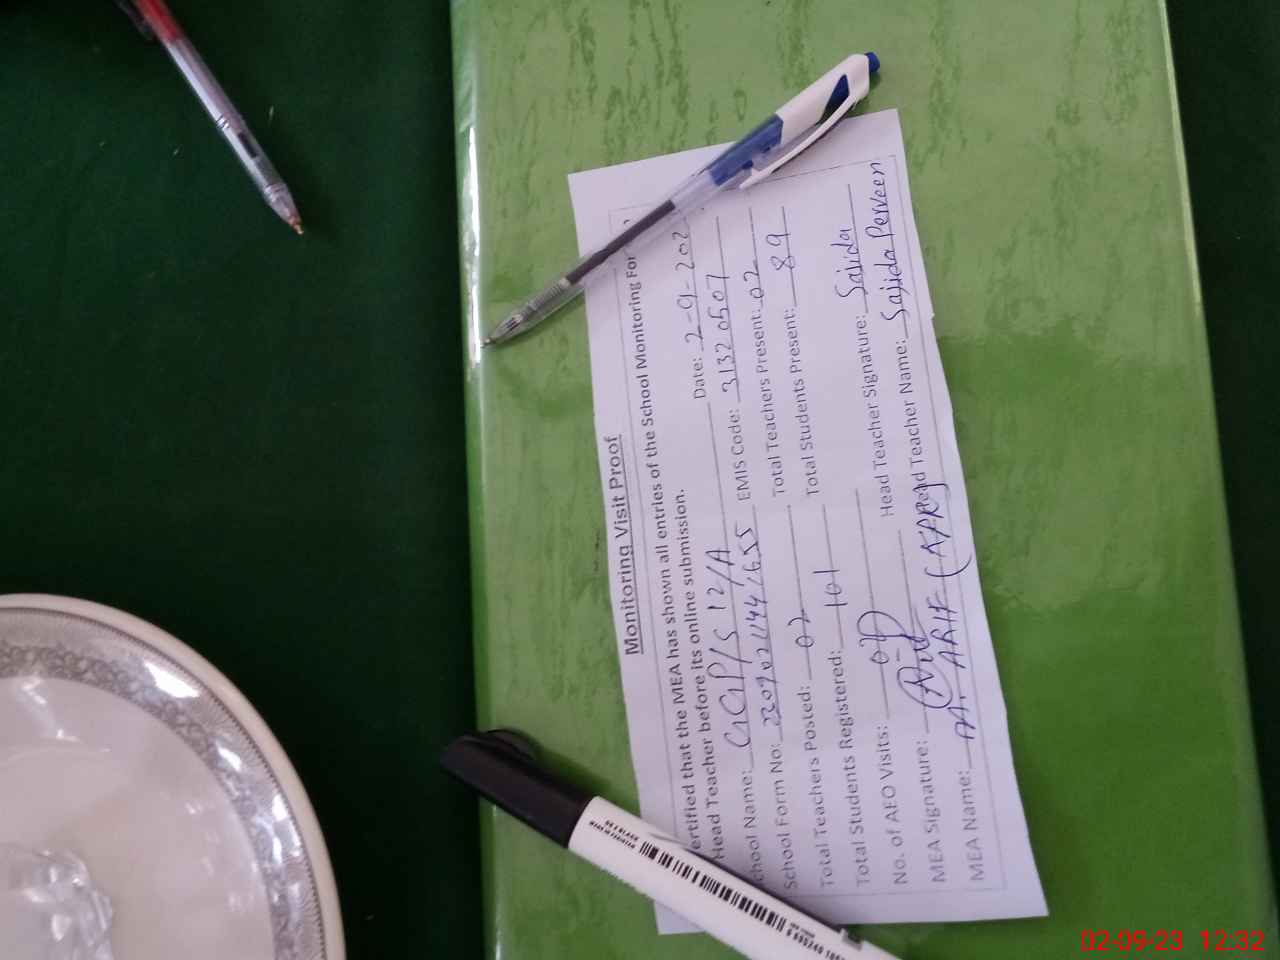 Monitoring Visit Proof
ertified that the MEA has shown all entries of the School Monitoring For
Head Teacher before its online submission.
chool Name: GGP/S 12/A Date: 2-9-202
School Form No: EMIS Code: 31320507
Total Teachers Posted: 02 Total Teachers Present: 02
Total Students Registered: 101 Total Students Present: 89
No. of AEO Visits: Head Teacher Signature: Sajida
MEA Signature: Head Teacher Name: Sajida Perveen
MEA Name: M. ARIF (KPR)
02-09-23 12:32